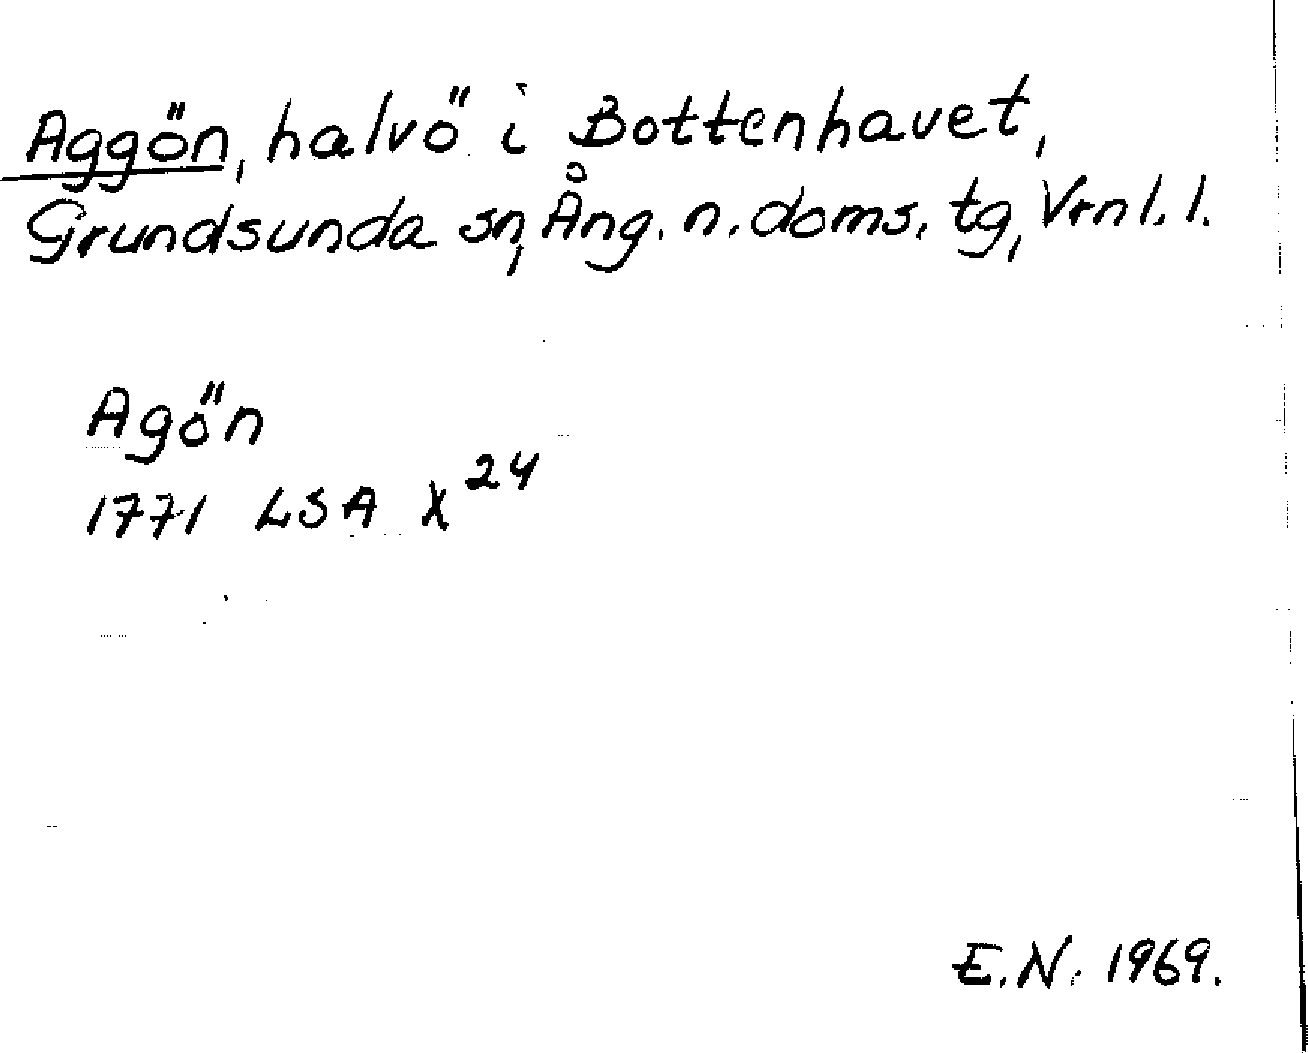 Aggön, halvö i Bottenhavet,
Grundsunda sn, Ång. n. doms. tg, Vrnl. l.
Agön
1771 LSA X 24
E.N. 1969.